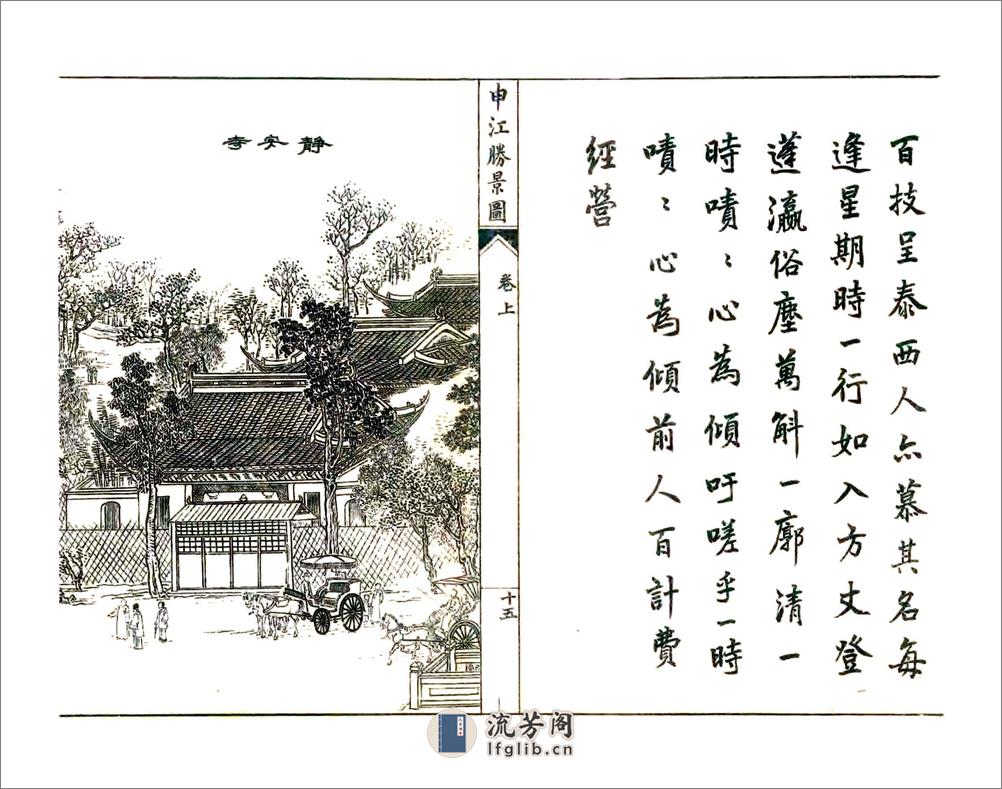 百技呈泰西人亦慕其名每
逢星期時一行如入方丈登
蓬瀛俗塵萬斛一廓清一
時嘖〻心為傾吁嗟乎一時
嘖〻心為傾前人百計費
經營
申江勝景圖
卷上
十五
靜安寺
流芳阁
lfglib.cn